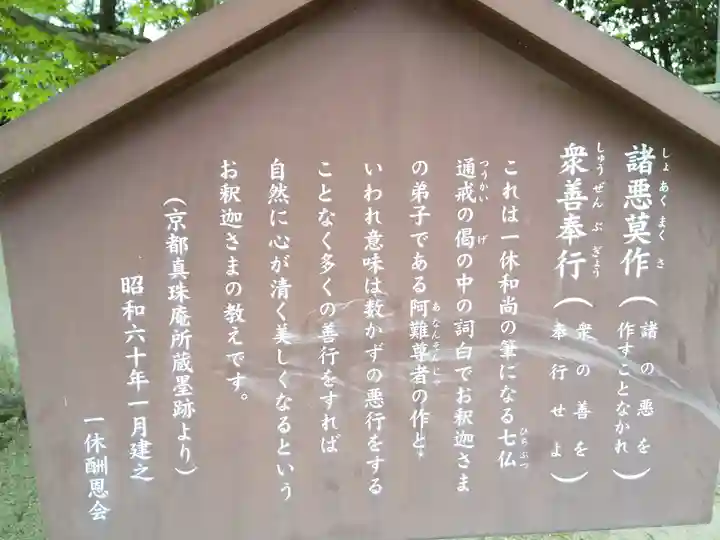 諸悪莫作（諸の悪を作すことなかれ）
しょあくまくさ
衆善奉行（衆の善を奉行せよ）
しゅうぜんぶぎょう
これは一休和尚の筆になる七仏
ひちぶつ
通戒の偈の中の詞白でお釈迦さま
つうかい げ
の弟子である阿難尊者の作と
あなんそんじゃ
いわれ意味は数かずの悪行をする
ことなく多くの善行をすれば
自然に心が清く美しくなるという
お釈迦さまの教えです。
（京都真珠庵所蔵墨跡より）
昭和六十年一月建之
一休酬恩会